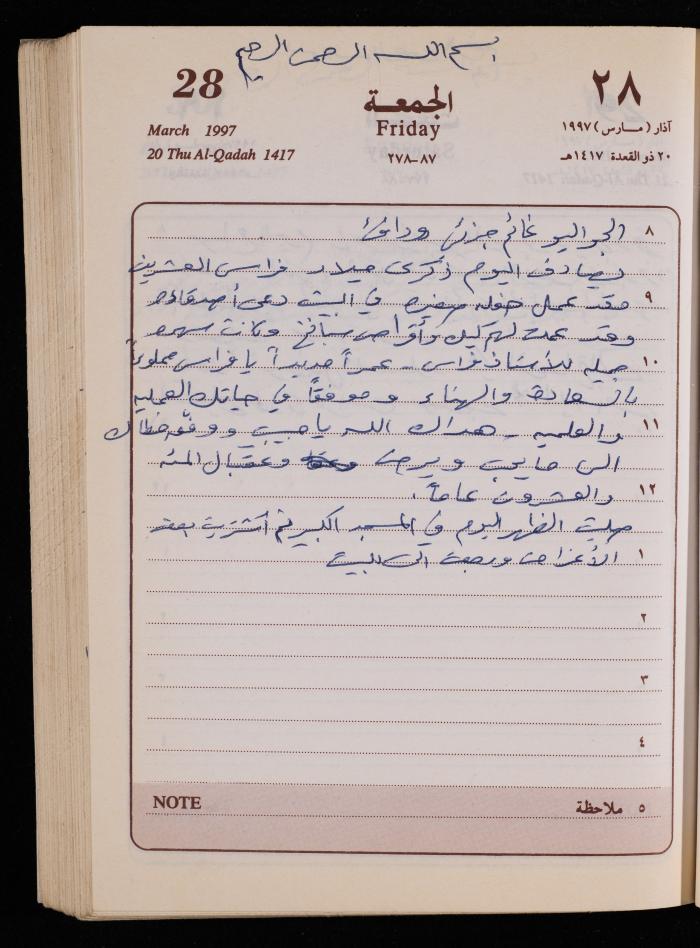 بسم الله الرحمن الرحيم
28
٢٨
الجمعة
Friday
March 1997
آذار (مارس) ١٩٩٧
20 Thu Al-Qadah 1417
٨٧–٢٧٨
٢٠ ذو القعدة ١٤١٧هـ
٨ الجو اليوم غائم جزئي ودافئ
يصادف اليوم ذكرى ميلاد فراس العشرين
٩ فقد عمل حفله صغيره في البيت دعى أصدقاؤه
وقد عملت لهم كيك وأقراص سبانخ وكانت سهره
١٠ جميله للأستاذ فراس - عمراً مديداً يا فراس مملوءاً
بالسعادة والهناء وموفقاً في حياتك العمليه
١١ والعلميه - هداك الله يا حبيبي ووفق خطاك
الى ما يحب ويرضى وعقبال المئه
١٢ والعشرون عاماً.
صليت الظهر اليوم في المسجد الكبير ثم اشتريت بعض
١ الأغراض ورجعت الى البيت
٢
٣
٤
NOTE
٥ ملاحظة